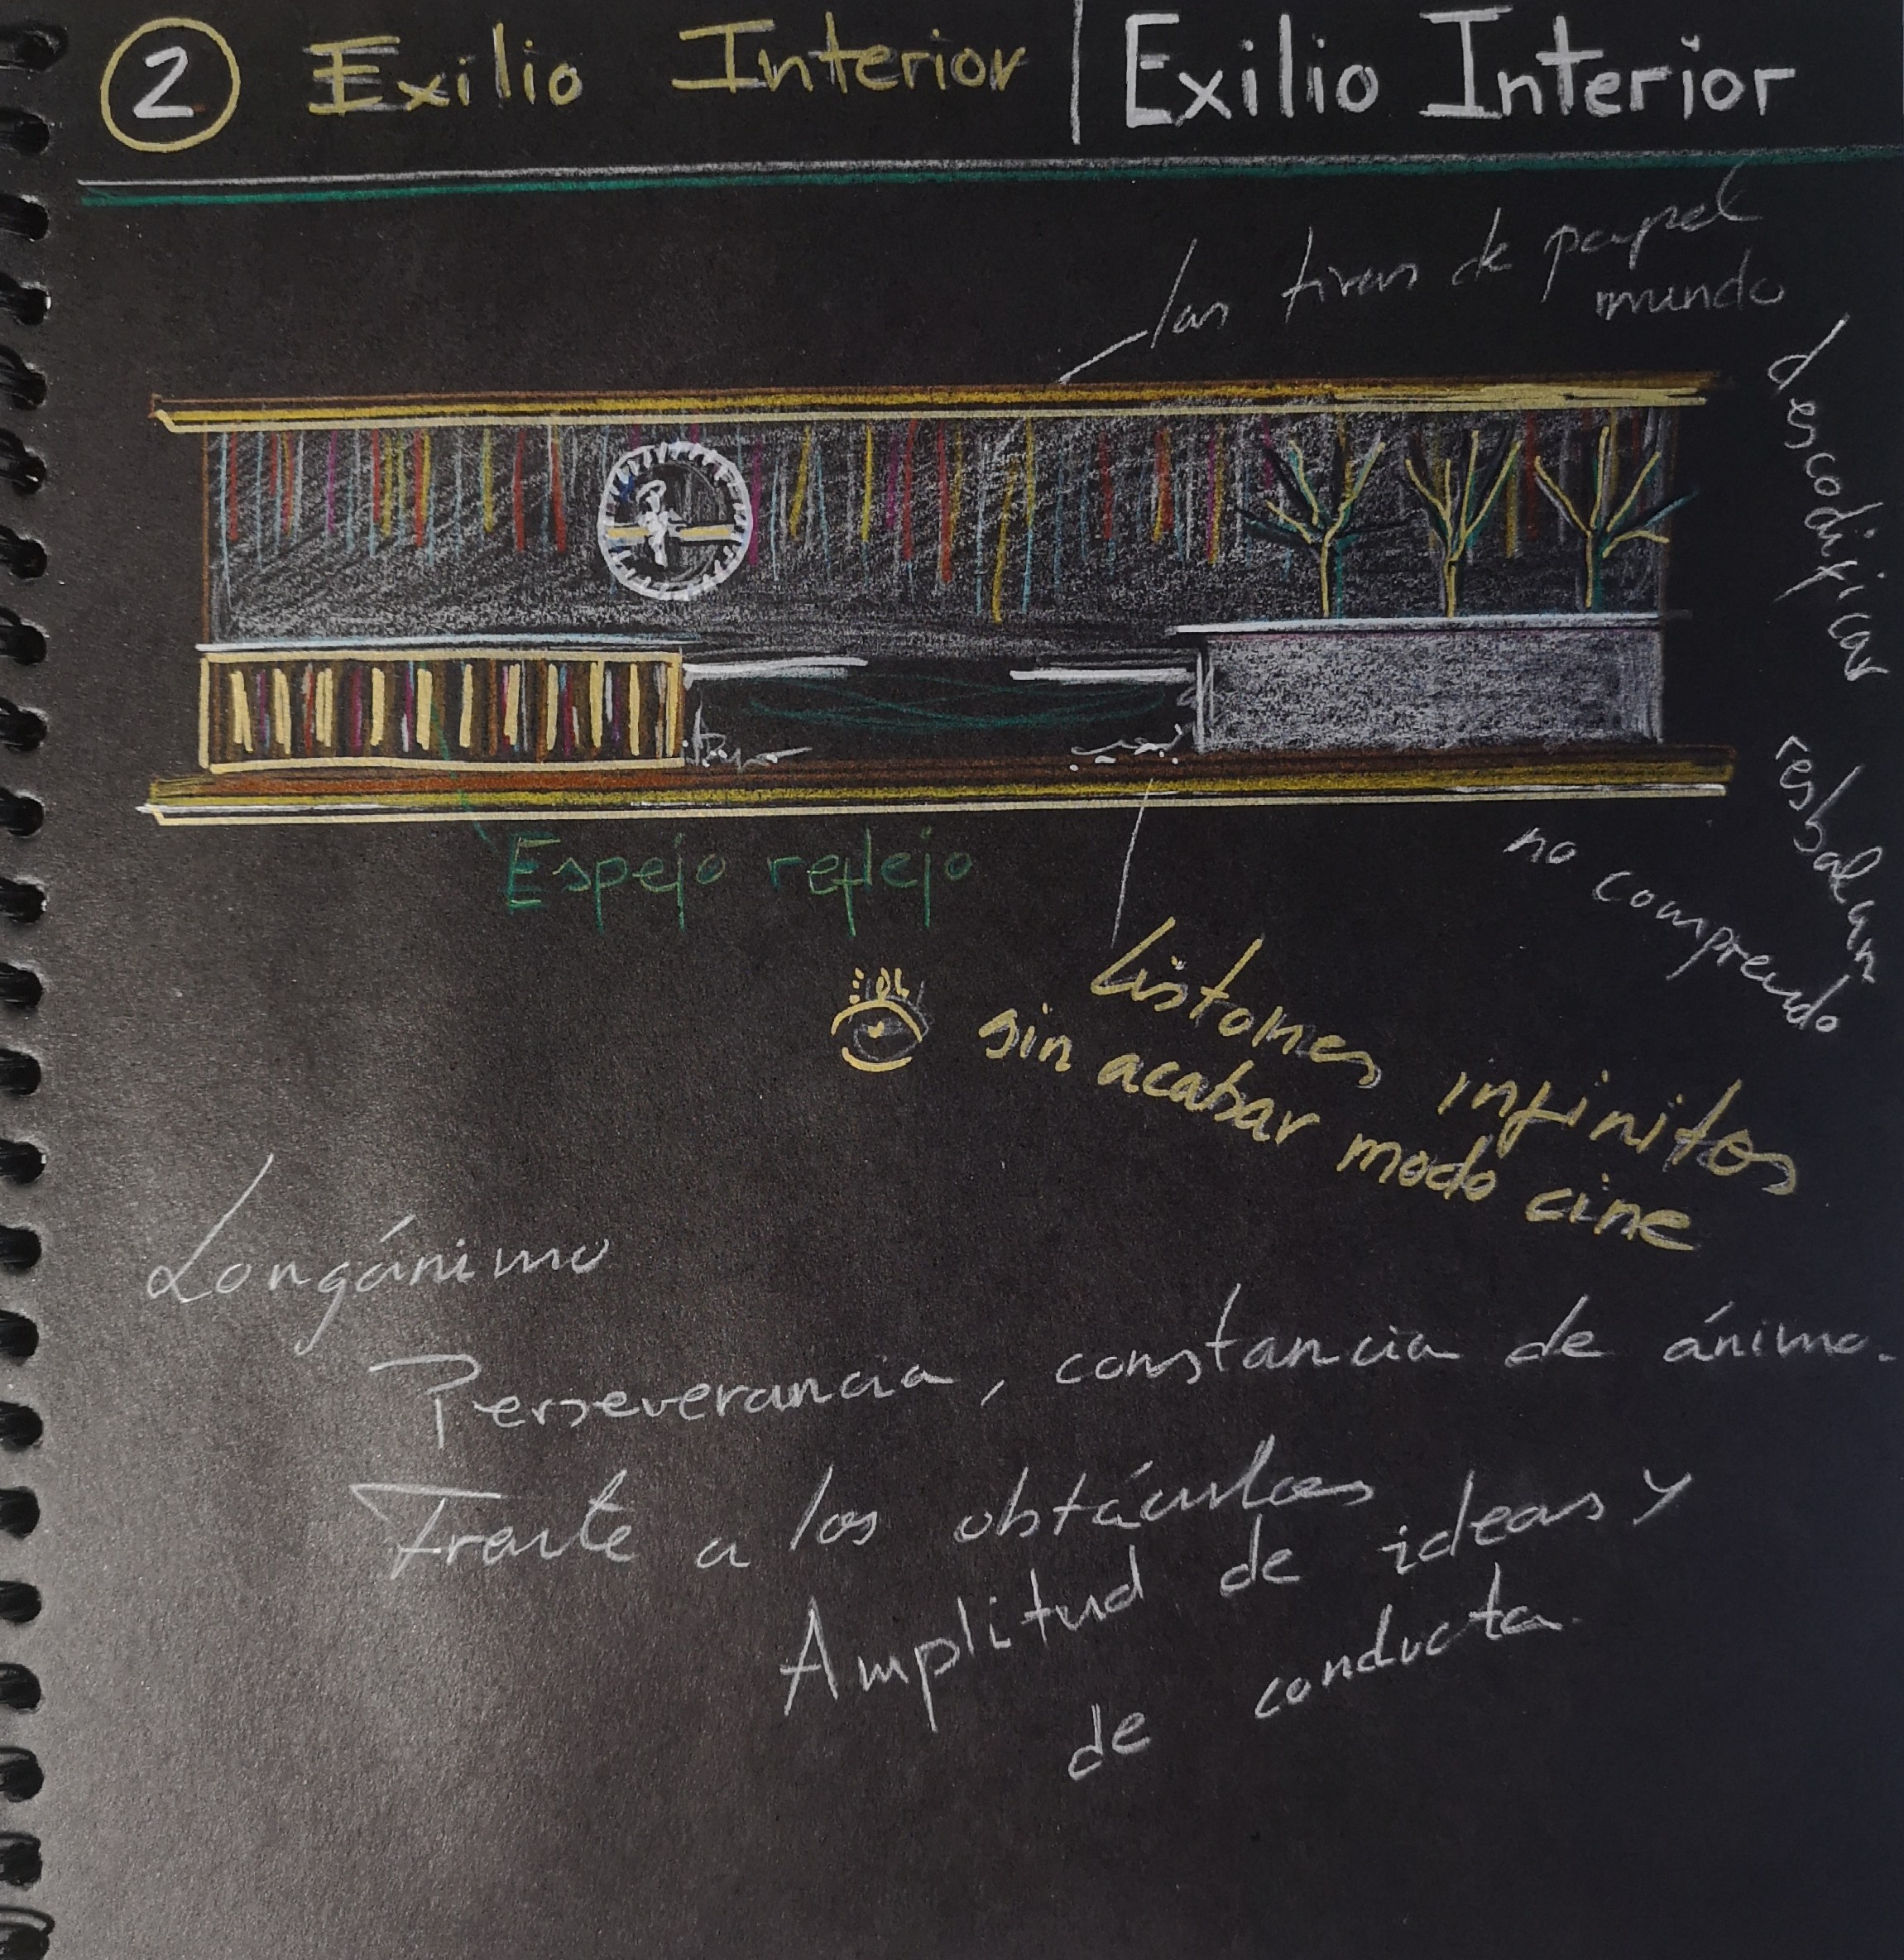 2 Exilio Interior | Exilio Interior
las tiras de papel
mundo
descodificar
resbalan
no comprendo
Espejo reflejo
Listones infinitos
sin acabar modo cine
Longánimo
Perseverancia, constancia de ánimo.
Frente a los obstáculos
Amplitud de ideas y
de conducta.